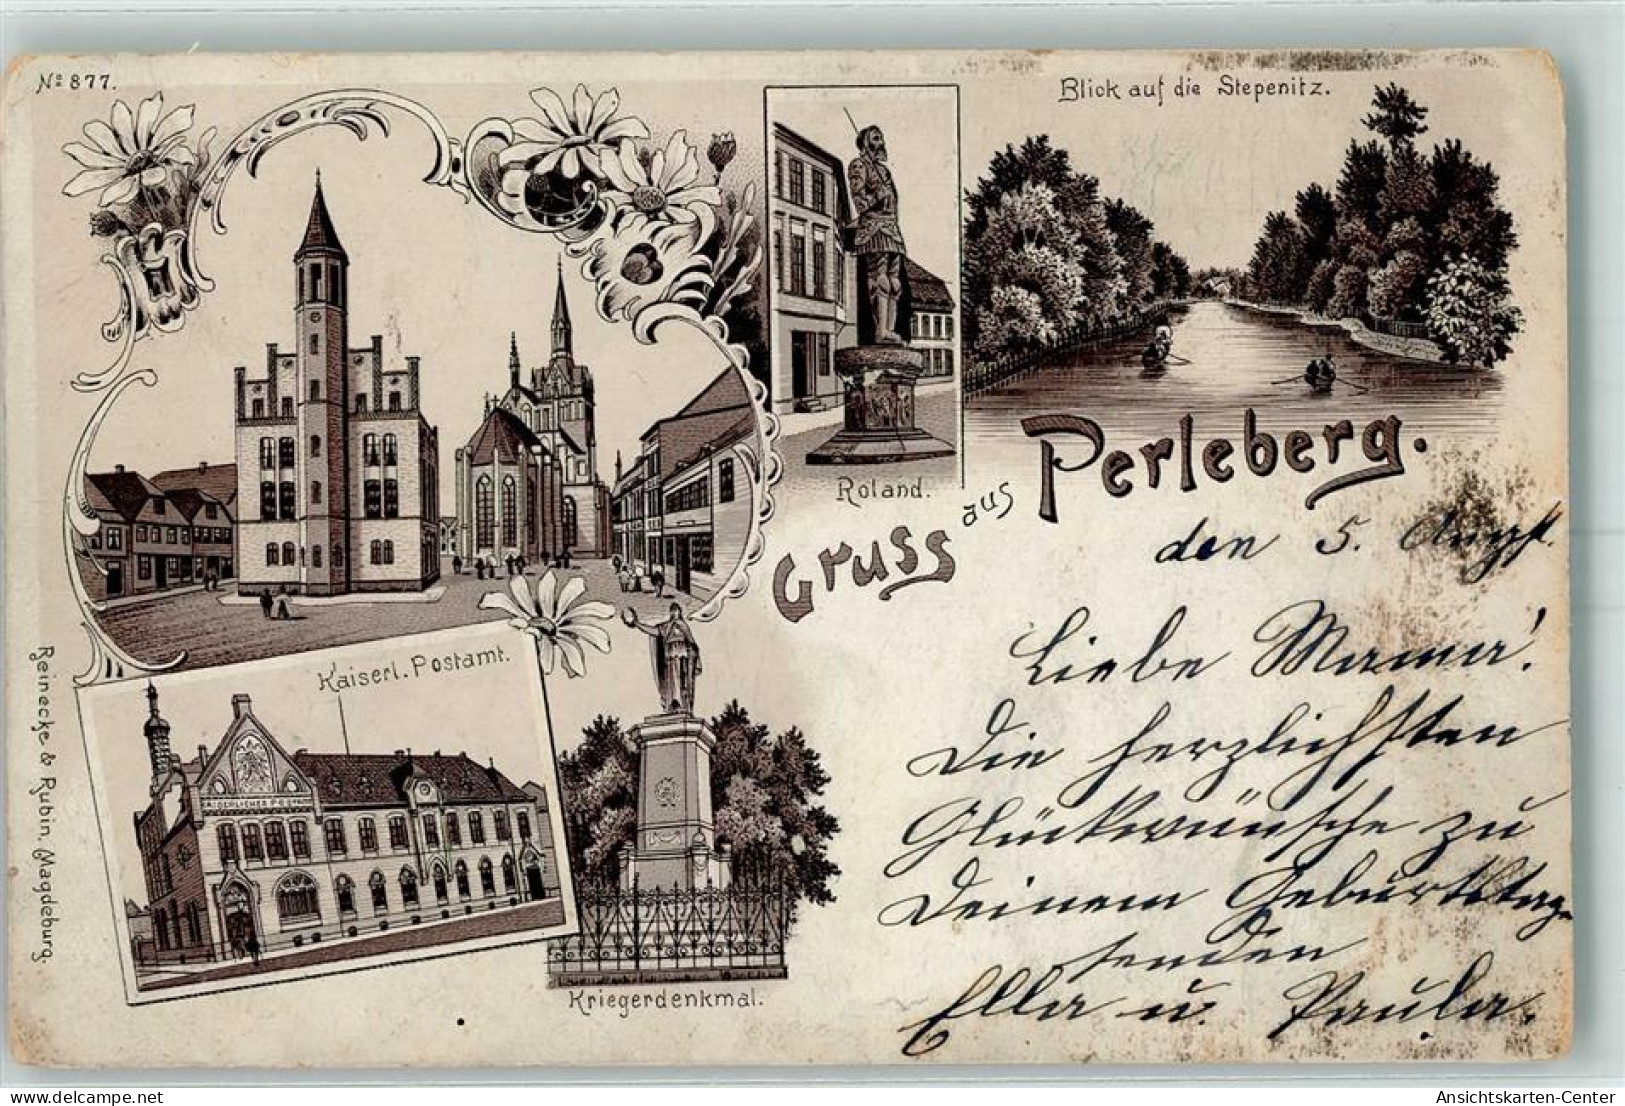 No 877.
Blick auf die Stepenitz.
Roland.
Gruss aus Perleberg.
Kaiserl. Postamt.
Kriegerdenkmal.
Reinecke & Rubin, Magdeburg.
den 5. Augst.
Liebe Mama!
Die herzlichsten
Glückwünsche zu
Deinem Geburtstage
senden
Ella u. Paula.
www.delcampe.net
My-Hobby
Ansichtskarten-Center